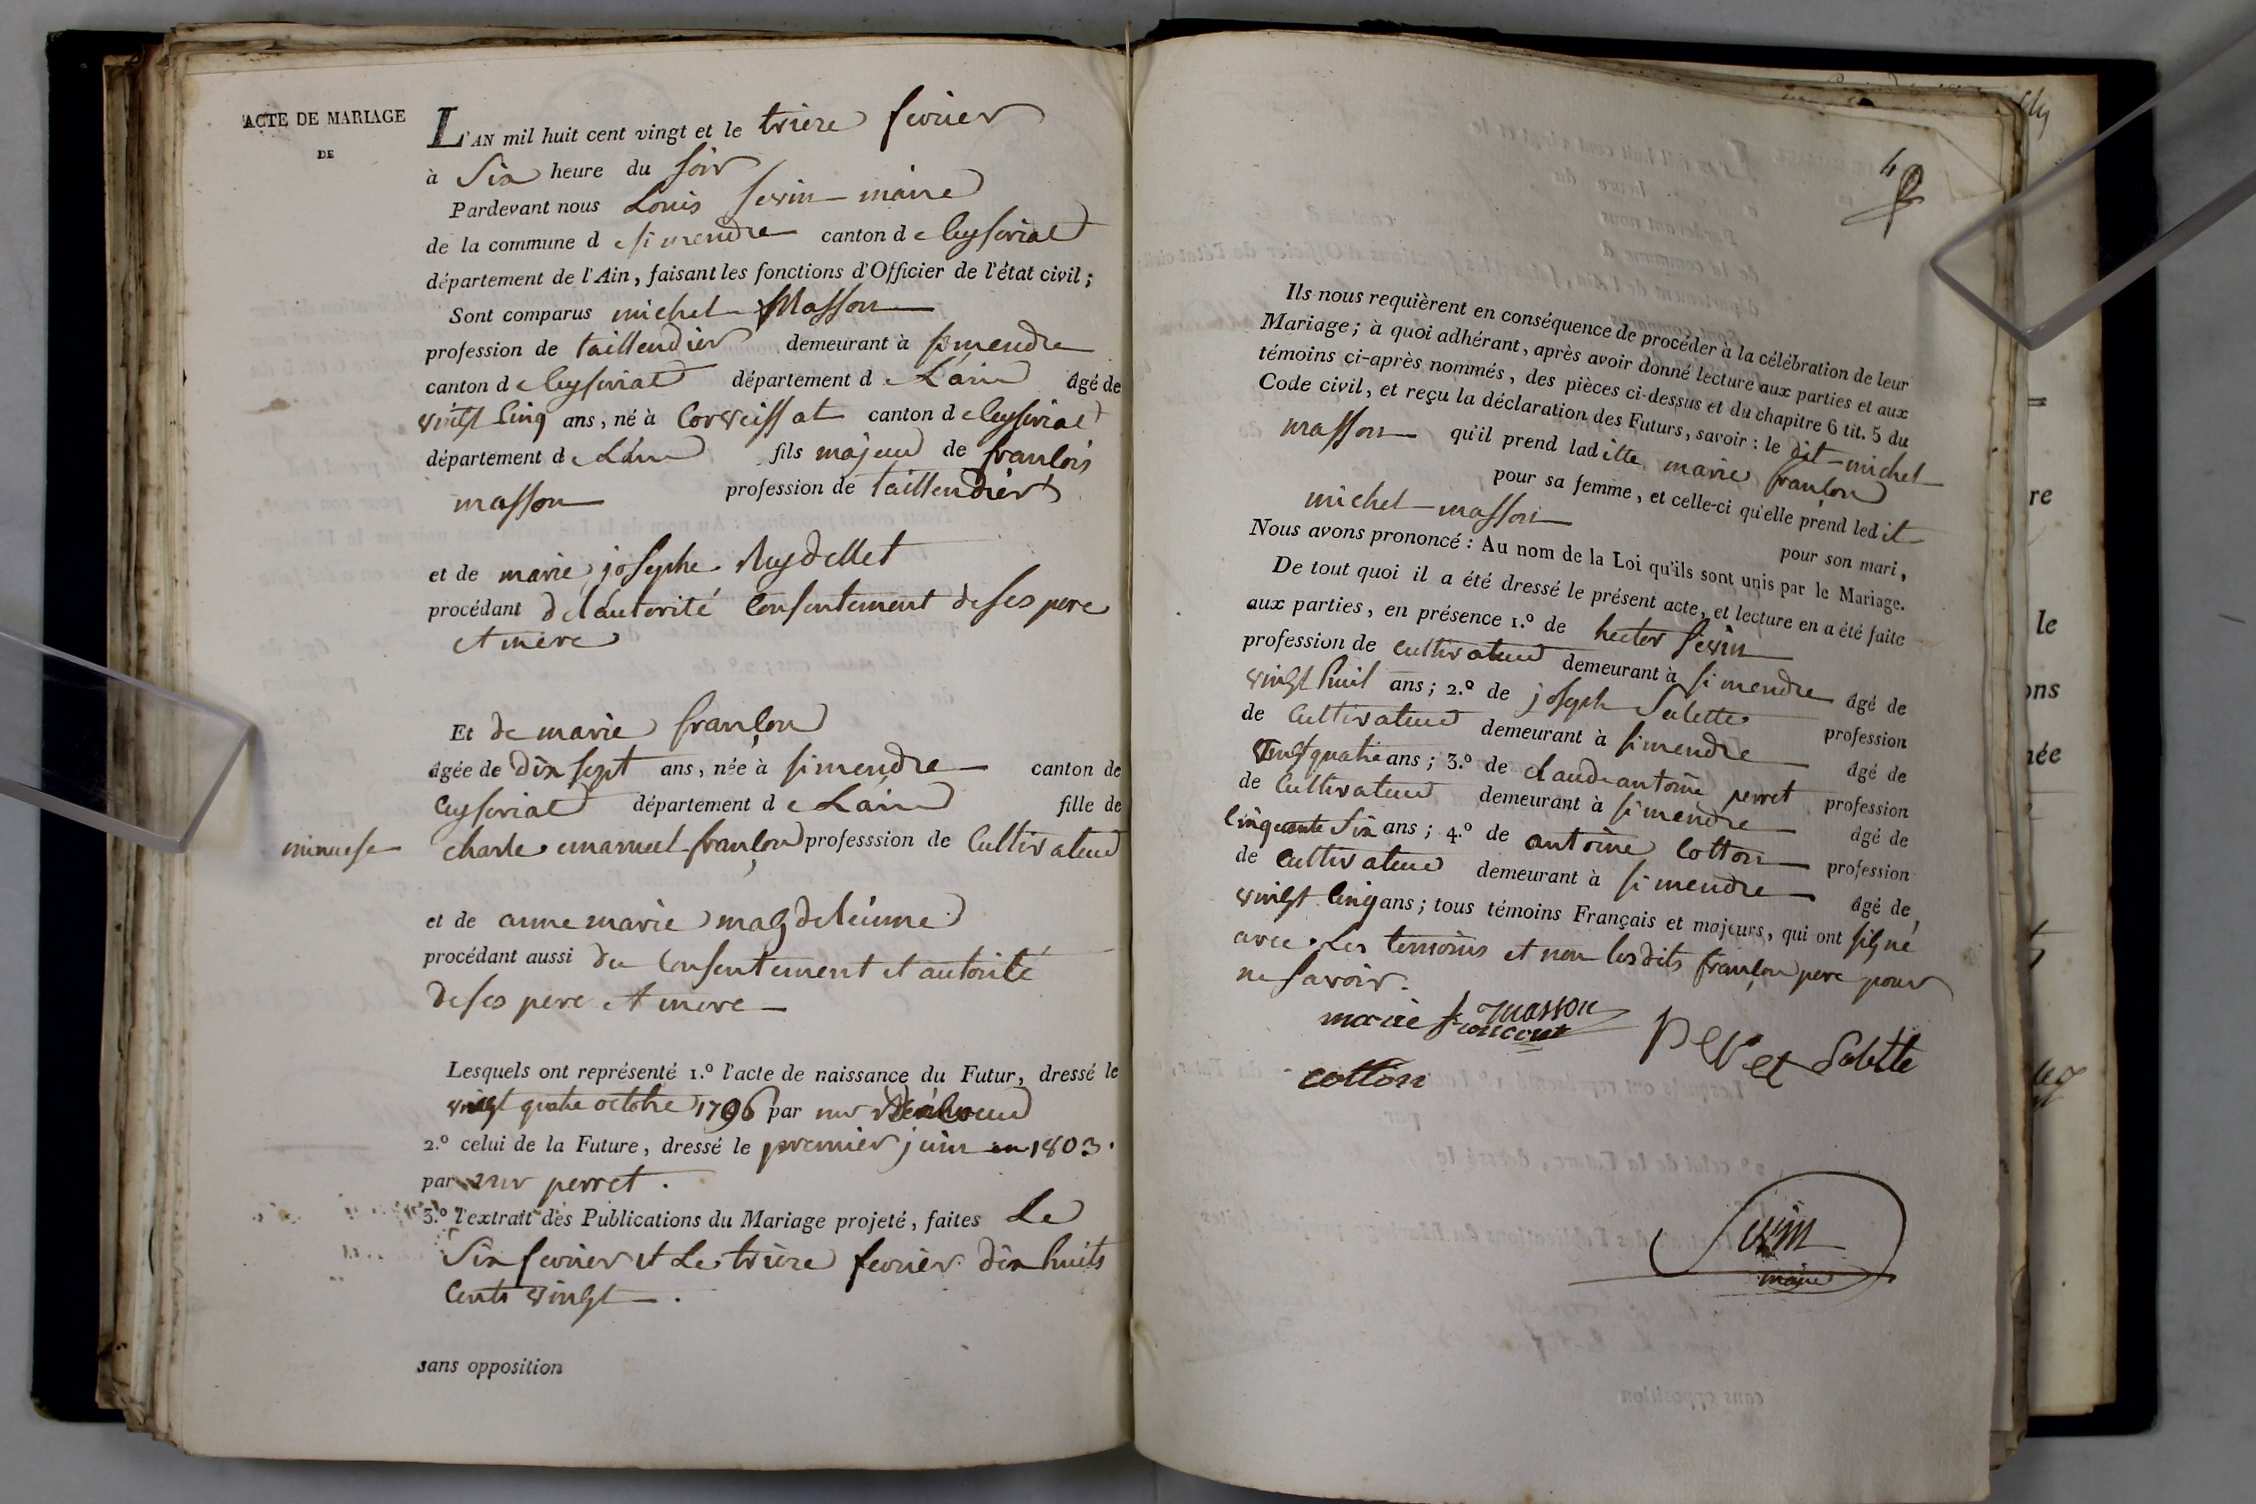 ACTE DE MARIAGE
DE
L'AN mil huit cent vingt et le treize fevrier
à Six heure du soir
Pardevant nous Louis sevin maire
de la commune d e simendre canton d e Ceyseriat
département de l'Ain, faisant les fonctions d'Officier de l'état civil ;
Sont comparus michel Masson
profession de taillendier demeurant à simendre
canton d e Ceyseriat département d e L'ain âgé de
vingt Cinq ans, né à Corveissat canton d e Ceyseriat
département d e L'ain fils majeur de françois
masson profession de taillendier
et de marie josephe Ruydellet
procédant de l'autorité Consentement de ses pere
et mere
Et de marie françon
âgée de dix sept ans, née à simendre canton de
Ceyseriat département d e L'ain fille de
mineuse charle emanuel françon professsion de Cultivateur
et de anne marie magdeleinne
procédant aussi du Consentement et autorité
de ses pere et mere
Lesquels ont représenté 1.º l'acte de naissance du Futur, dressé le
vingt quatre octobre 1796 par mr
2.º celui de la Future, dressé le premier juin en 1803.
par mr perret.
3.º l'extrait des Publications du Mariage projeté, faites Le
Six fevrier et Le treize fevrier dix huits
Cents vingt.
sans opposition
4
Ils nous requièrent en conséquence de procéder à la célébration de leur
Mariage ; à quoi adhérant, après avoir donné lecture aux parties et aux
témoins ci-après nommés, des pièces ci-dessus et du chapitre 6 tit. 5 du
Code civil, et reçu la déclaration des Futurs, savoir : le dit michel
masson qu'il prend lad itte marie françon
pour sa femme, et celle-ci qu'elle prend led it
michel masson pour son mari,
Nous avons prononcé : Au nom de la Loi qu'ils sont unis par le Mariage.
De tout quoi il a été dressé le présent acte, et lecture en a été faite
aux parties, en présence 1.º de hector sevin
profession de cultivateur demeurant à simendre âgé de
vingt huit ans ; 2.º de joseph Salette profession
de Cultivateur demeurant à simendre âgé de
vingt quatre ans ; 3.º de claude antoine perret profession
de Cultivateur demeurant à simendre âgé de
Cinquante Six ans ; 4.º de antoine Cotton profession
de Cultivateur demeurant à simendre âgé de
vingt Cinq ans ; tous témoins Français et majeurs, qui ont signé
avec Les temoins et non lesdits françon pere pour
ne savoir.
masson
marie francout
Peret Salette
cotton
Sevin
maire